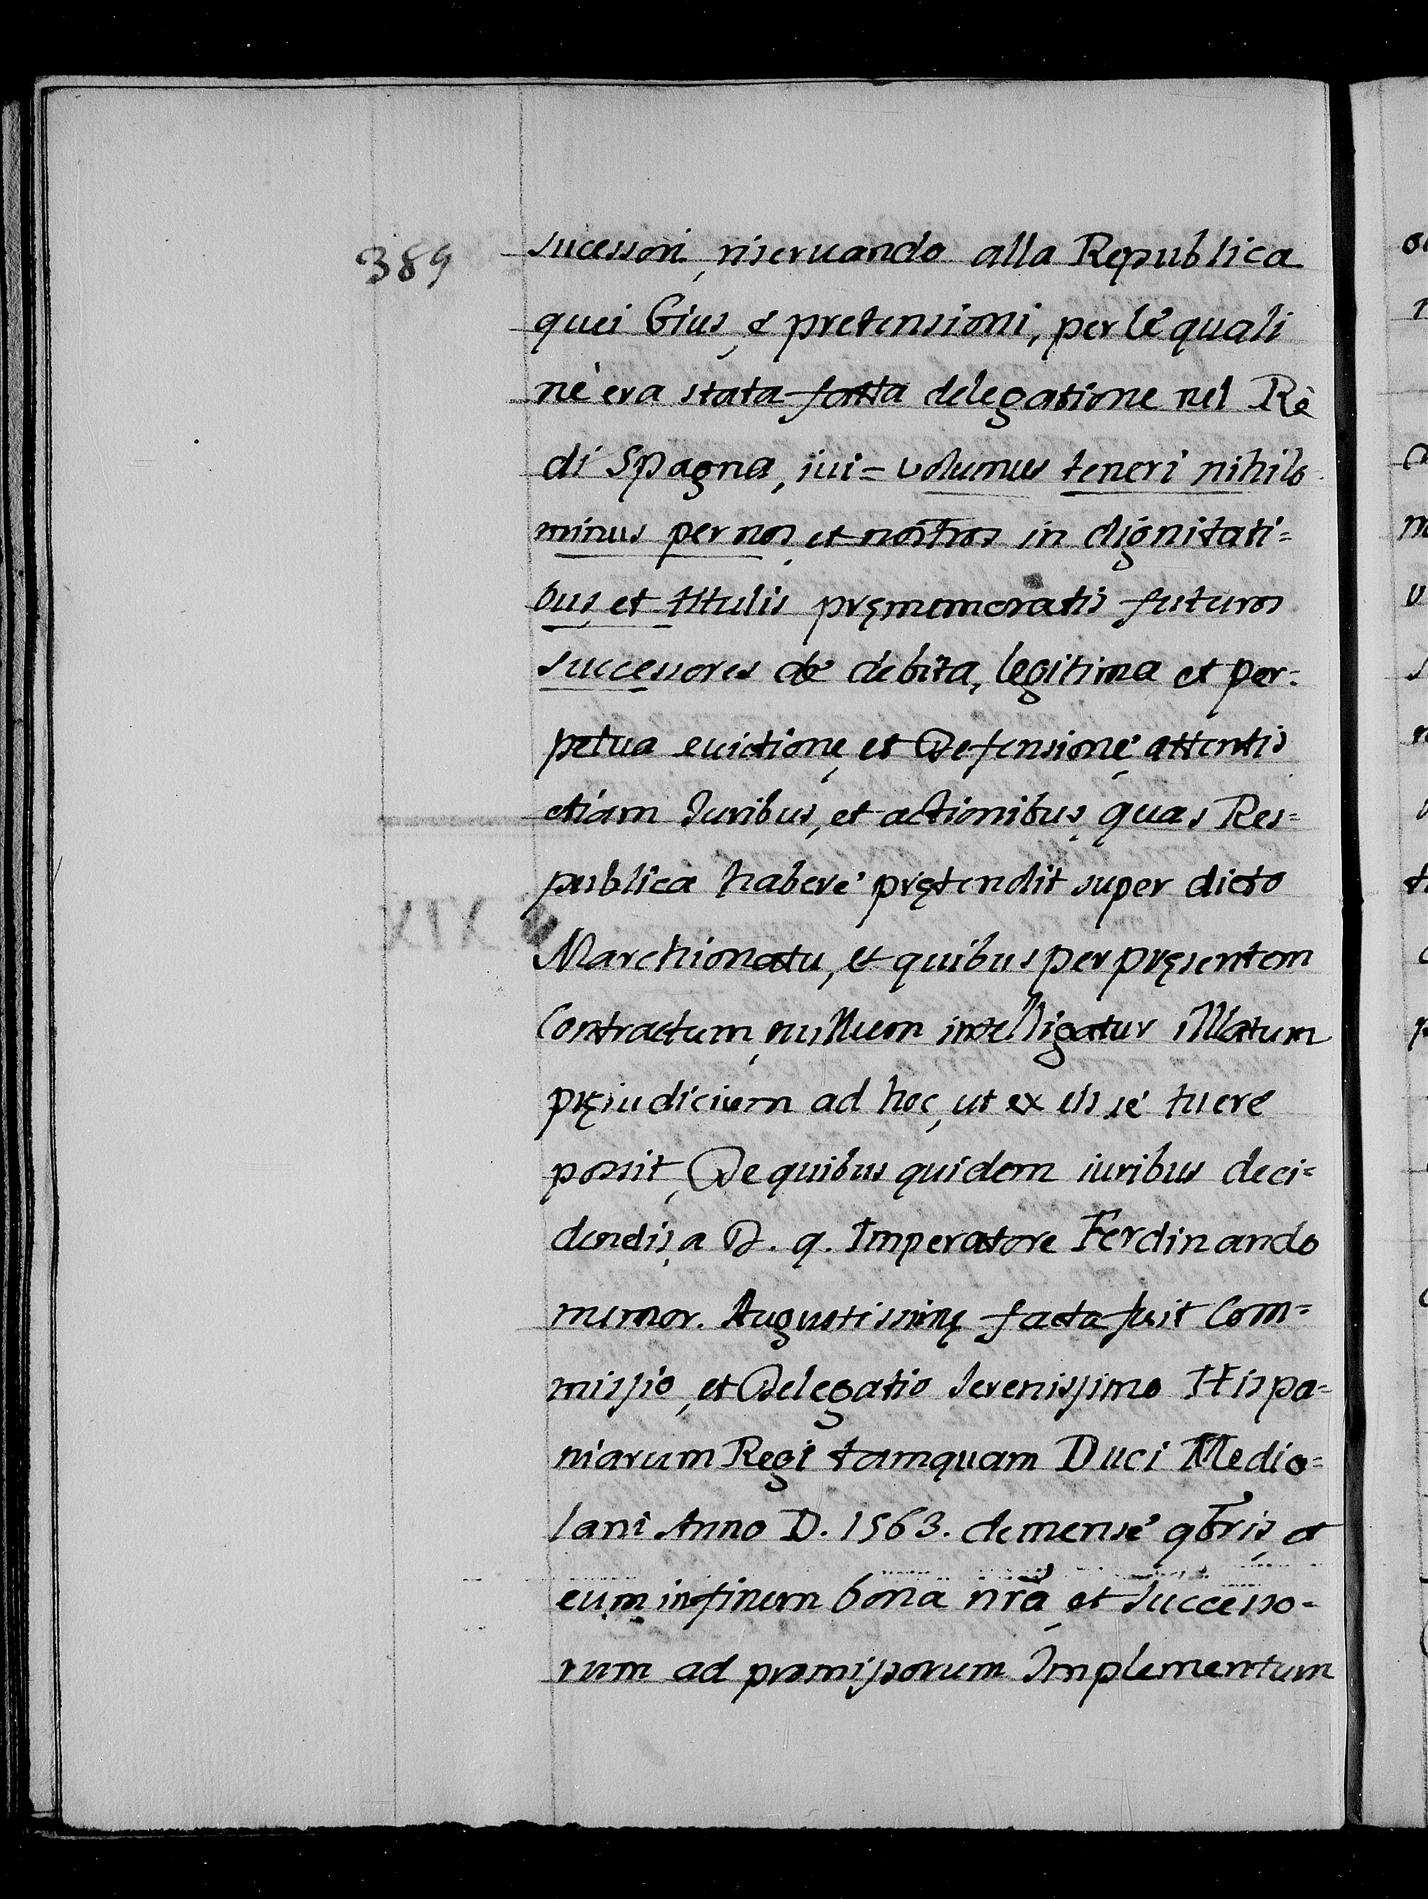 389
sucessori, riseruando alla Republica
quei Gius, e pretensioni, per le quali
ne era stata fatta delegatione nel Rè
di Spagna, iui = volumus teneri nihilo
minus per nos, et nostros in dignitati=
bus, et titulis pręmemoratis futuros
successores de debita, legitima et per=
petua euictionę et Defensionę attentis
etiam Iuribus, et actionibus, quas Res=
publica habere prętendit super dicto
Marchionatu, et quibus per pręsentem
Contractum, nullum intelligatur illatum
pręiudicium ad hoc, ut ex eis se tuere
possit, De quibus quidem iuribus deci=
dendis, a D. q. Imperatore Ferdinando
memor. Augustissimę facta fuit Com=
missio, et Delegatio Serenissimo Hispa=
niarum Regi tamquam Duci Medio=
lani Anno D. 1563. de mense qbris, et
eum in finem bona nra, et Successo=
rum ad promissorum Implementum